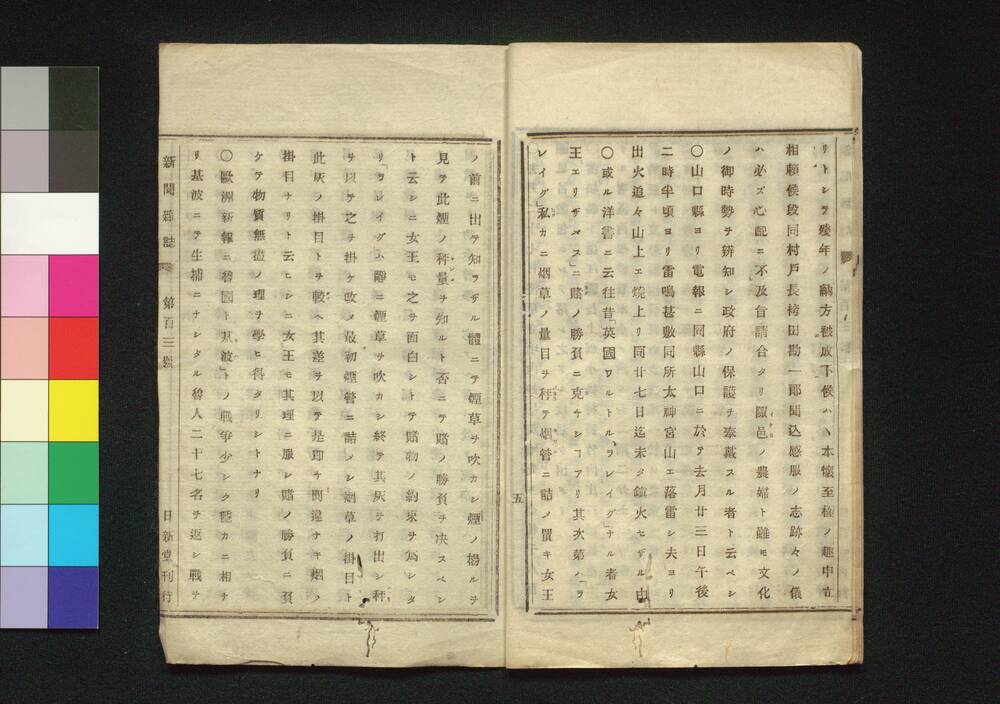 リトシテ殘年ノ納方被成下候ハヽ本懷至極ノ趣申立
相願候段同村戸長袴田勘一郎聞込感服ノ志跡々ノ儀
ハ必ズ心配ニ不及旨請合タリ陬邑ノ農婦ト雖モ文化
ノ御時勢ヲ辨知シ政府ノ保護ヲ奉戴スル者ト云ベシ
〇山口縣ヨリ電報ニ同縣山口ニ於テ去月廿三日午後
二時半頃ヨリ雷鳴甚敷同所太神宮山エ落雷シ夫ヨリ
出火追々山上エ燒上リ同廿七日迄未タ鎭火セザル由
〇或ル洋書ニ云往昔英國ワルトル、ラレイグナル者女
王エリザベスニ賭ノ勝負ニ克ケシヿアリ其次第ハラ
レイグ私カニ烟草ノ量目ヲ秤テ烟管ニ詰メ置キ女王
五
ノ前ニ出テ知ラザル體ニテ煙草ヲ吹カシ煙ノ揚ルヲ
見テ此煙ノ秤量ヲ知ルト否ニテ賭ノ勝負ヲ决スベシ
ト云シニ女王モ之ヲ面白シトテ賭物ノ約束ヲ爲シタ
リラレイグハ離ニ煙草ヲ吹カシ終テ其灰ヲ打出シ秤
ヲ以テ之ヲ掛ケ改メ最初煙管ニ詰メシ烟草ノ掛目ト
此灰ノ掛目トヲ較ヘ其差ヲ以テ是即ケ間違ナキ烟ノ
掛目ナリト云ヒシニ女王モ其理ニ服シ賭ノ勝負ニ負
ケテ物質無盡ノ理ヲ學ヒ得タリシトナリ
〇歐洲新報ニ魯國ト基波トノ戰爭少シク靜カニ相ナ
リ基波ニテ生捕ニナシタル魯人二十七名ヲ返シ戰ヲ
新聞雜誌 第百三號 日新堂刊行